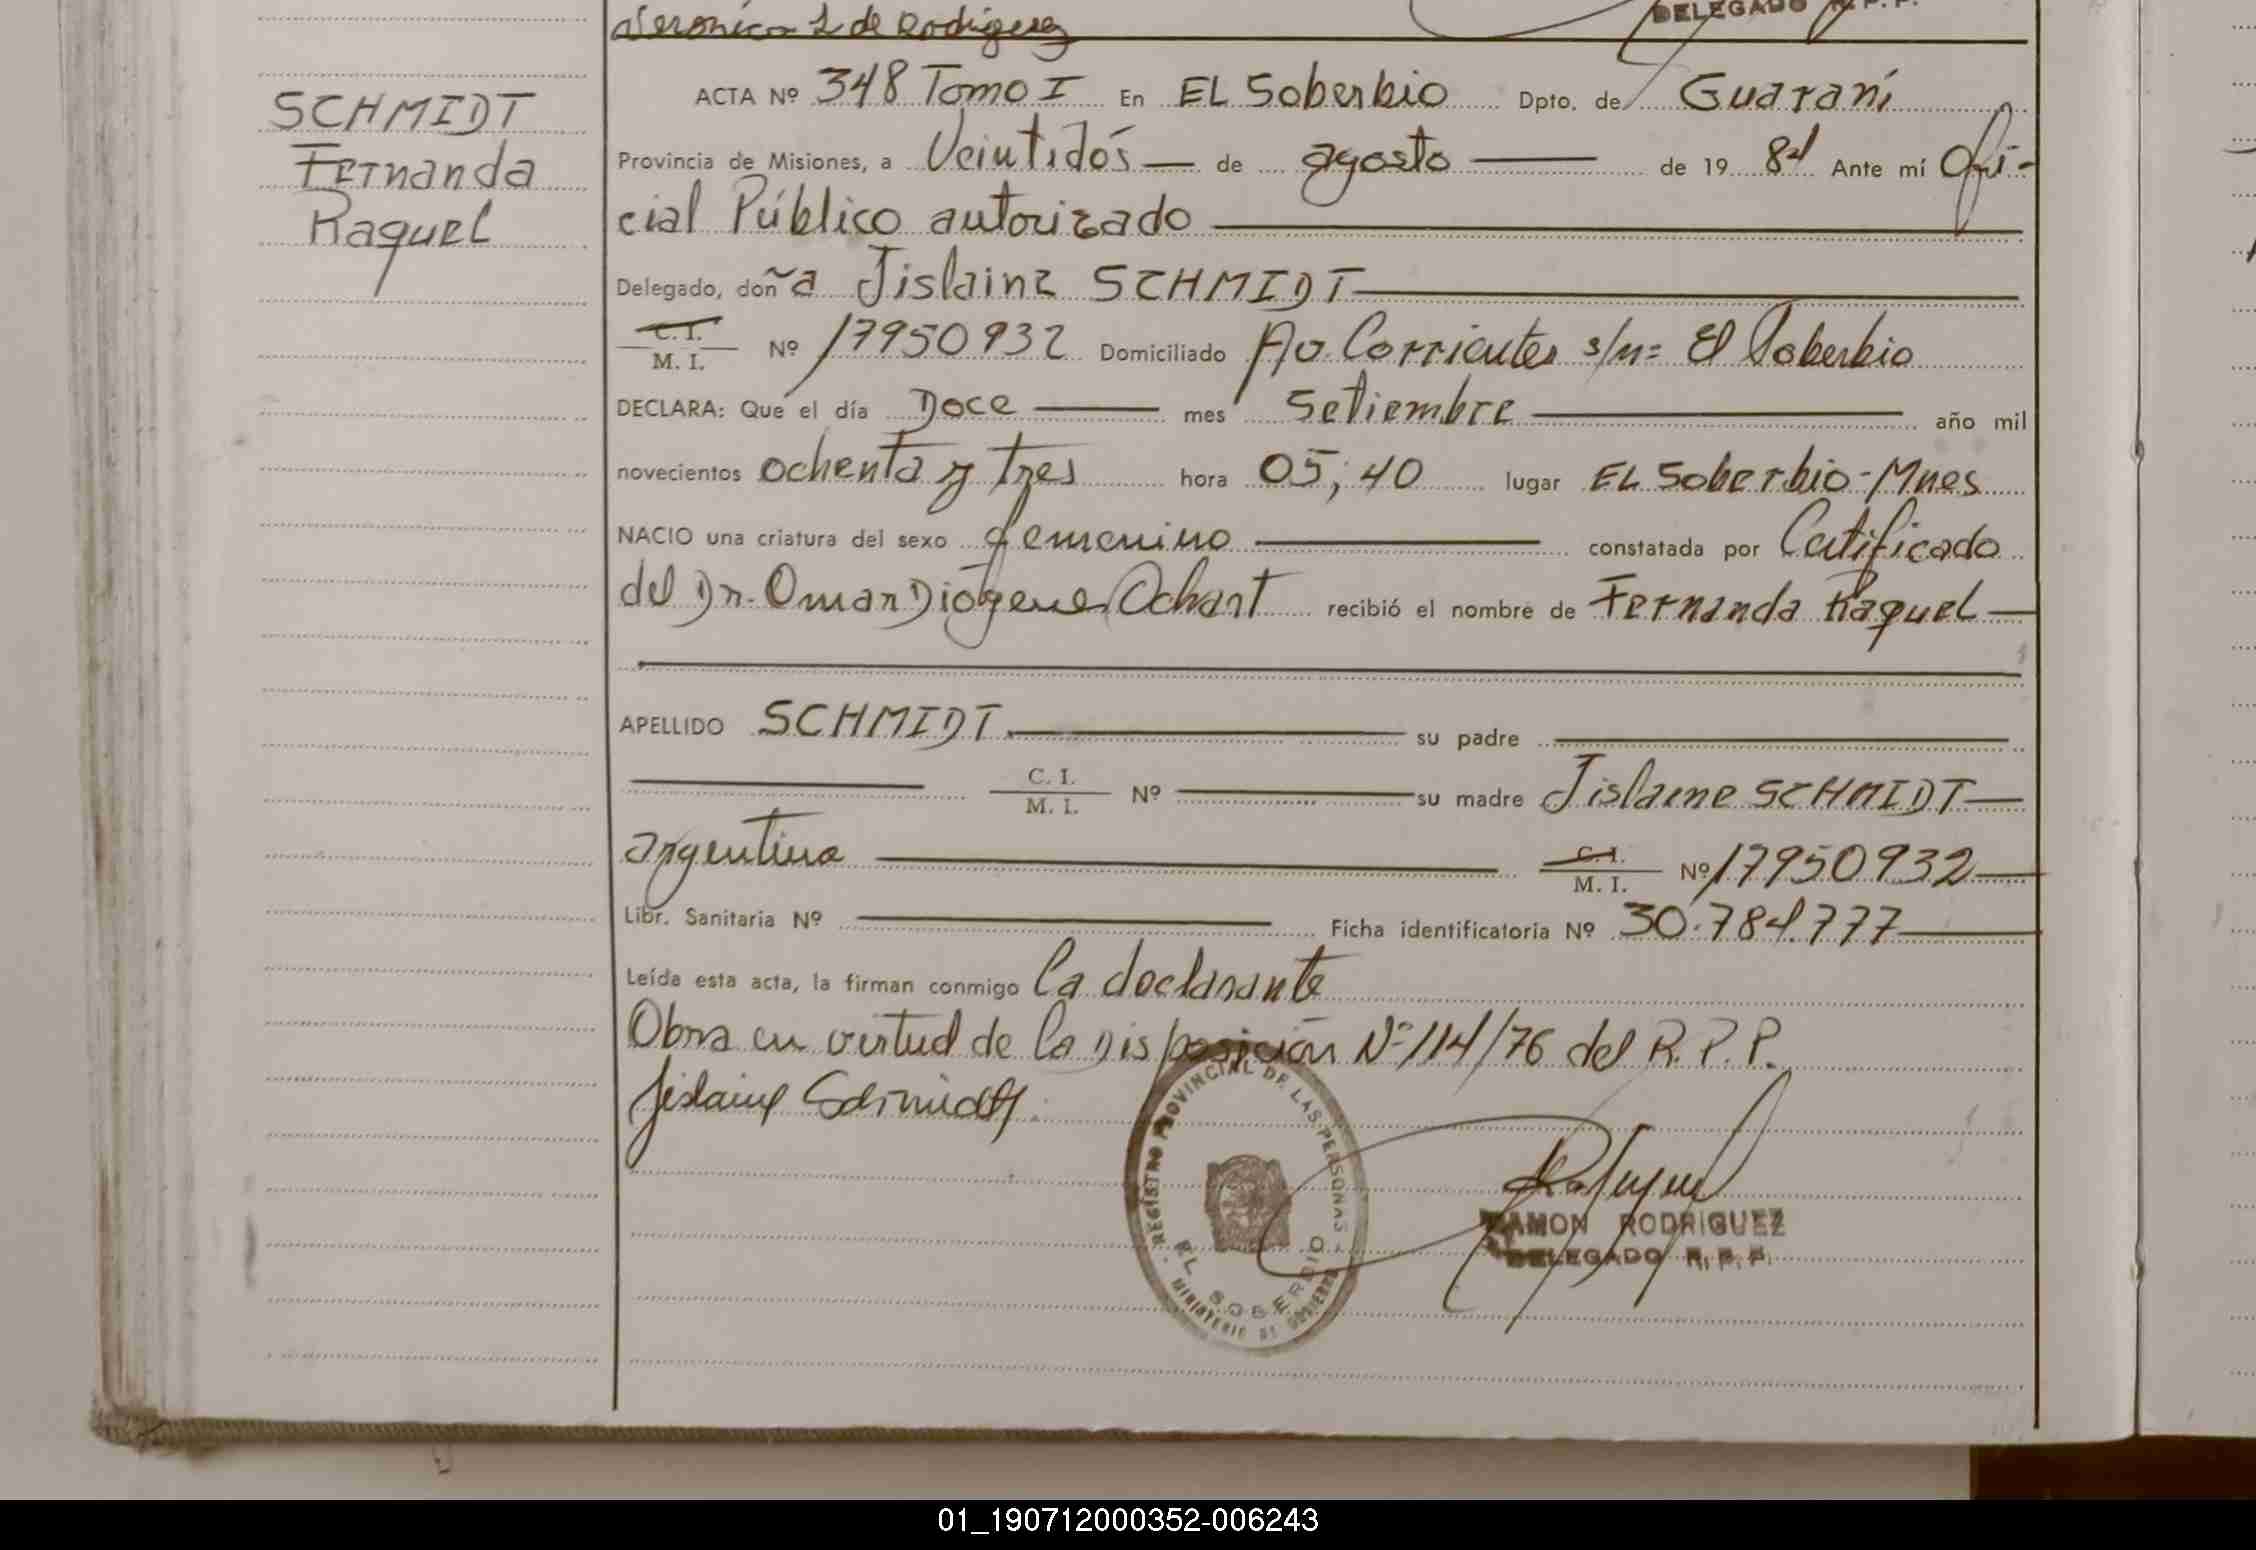 Veronica L de Rodriguez
DELEGADO R.P.P.
SCHMIDT
Fernanda
Raquel
ACTA Nº 348 Tomo I En EL Soberbio Dpto. de Guaraní
Provincia de Misiones, a Veintidós de agosto de 19 84 Ante mí Ofi-
cial Público autorizado
Delegado, doña Jislaine SCHMIDT
C. I.
M. I. Nº 17950932 Domiciliado Av. Corrientes s/n= El Soberbio
DECLARA: Que el día Doce mes Setiembre año mil
novecientos ochenta y tres hora 05;40 lugar EL Soberbio-Mnes
NACIO una criatura del sexo femenino constatada por Certificado
del Dr. Omar Diógenes Ochart recibió el nombre de Fernanda Raquel
APELLIDO SCHMIDT su padre
C. I.
M. I. Nº su madre Jislaine SCHMIDT
argentina C. I.
M. I. Nº 17950932
Libr. Sanitaria Nº Ficha identificatoria Nº 30.784.777
Leída esta acta, la firman conmigo la declarante
Obra en virtud de la Disposición Nº 114/76 del R. P. P.
Jislaine Schmidt
REGISTRO PROVINCIAL DE LAS PERSONAS
EL SOBERBIO
MINISTERIO DE GOBIERNO
RAMON RODRIGUEZ
DELEGADO R. P. P.
01_190712000352-006243